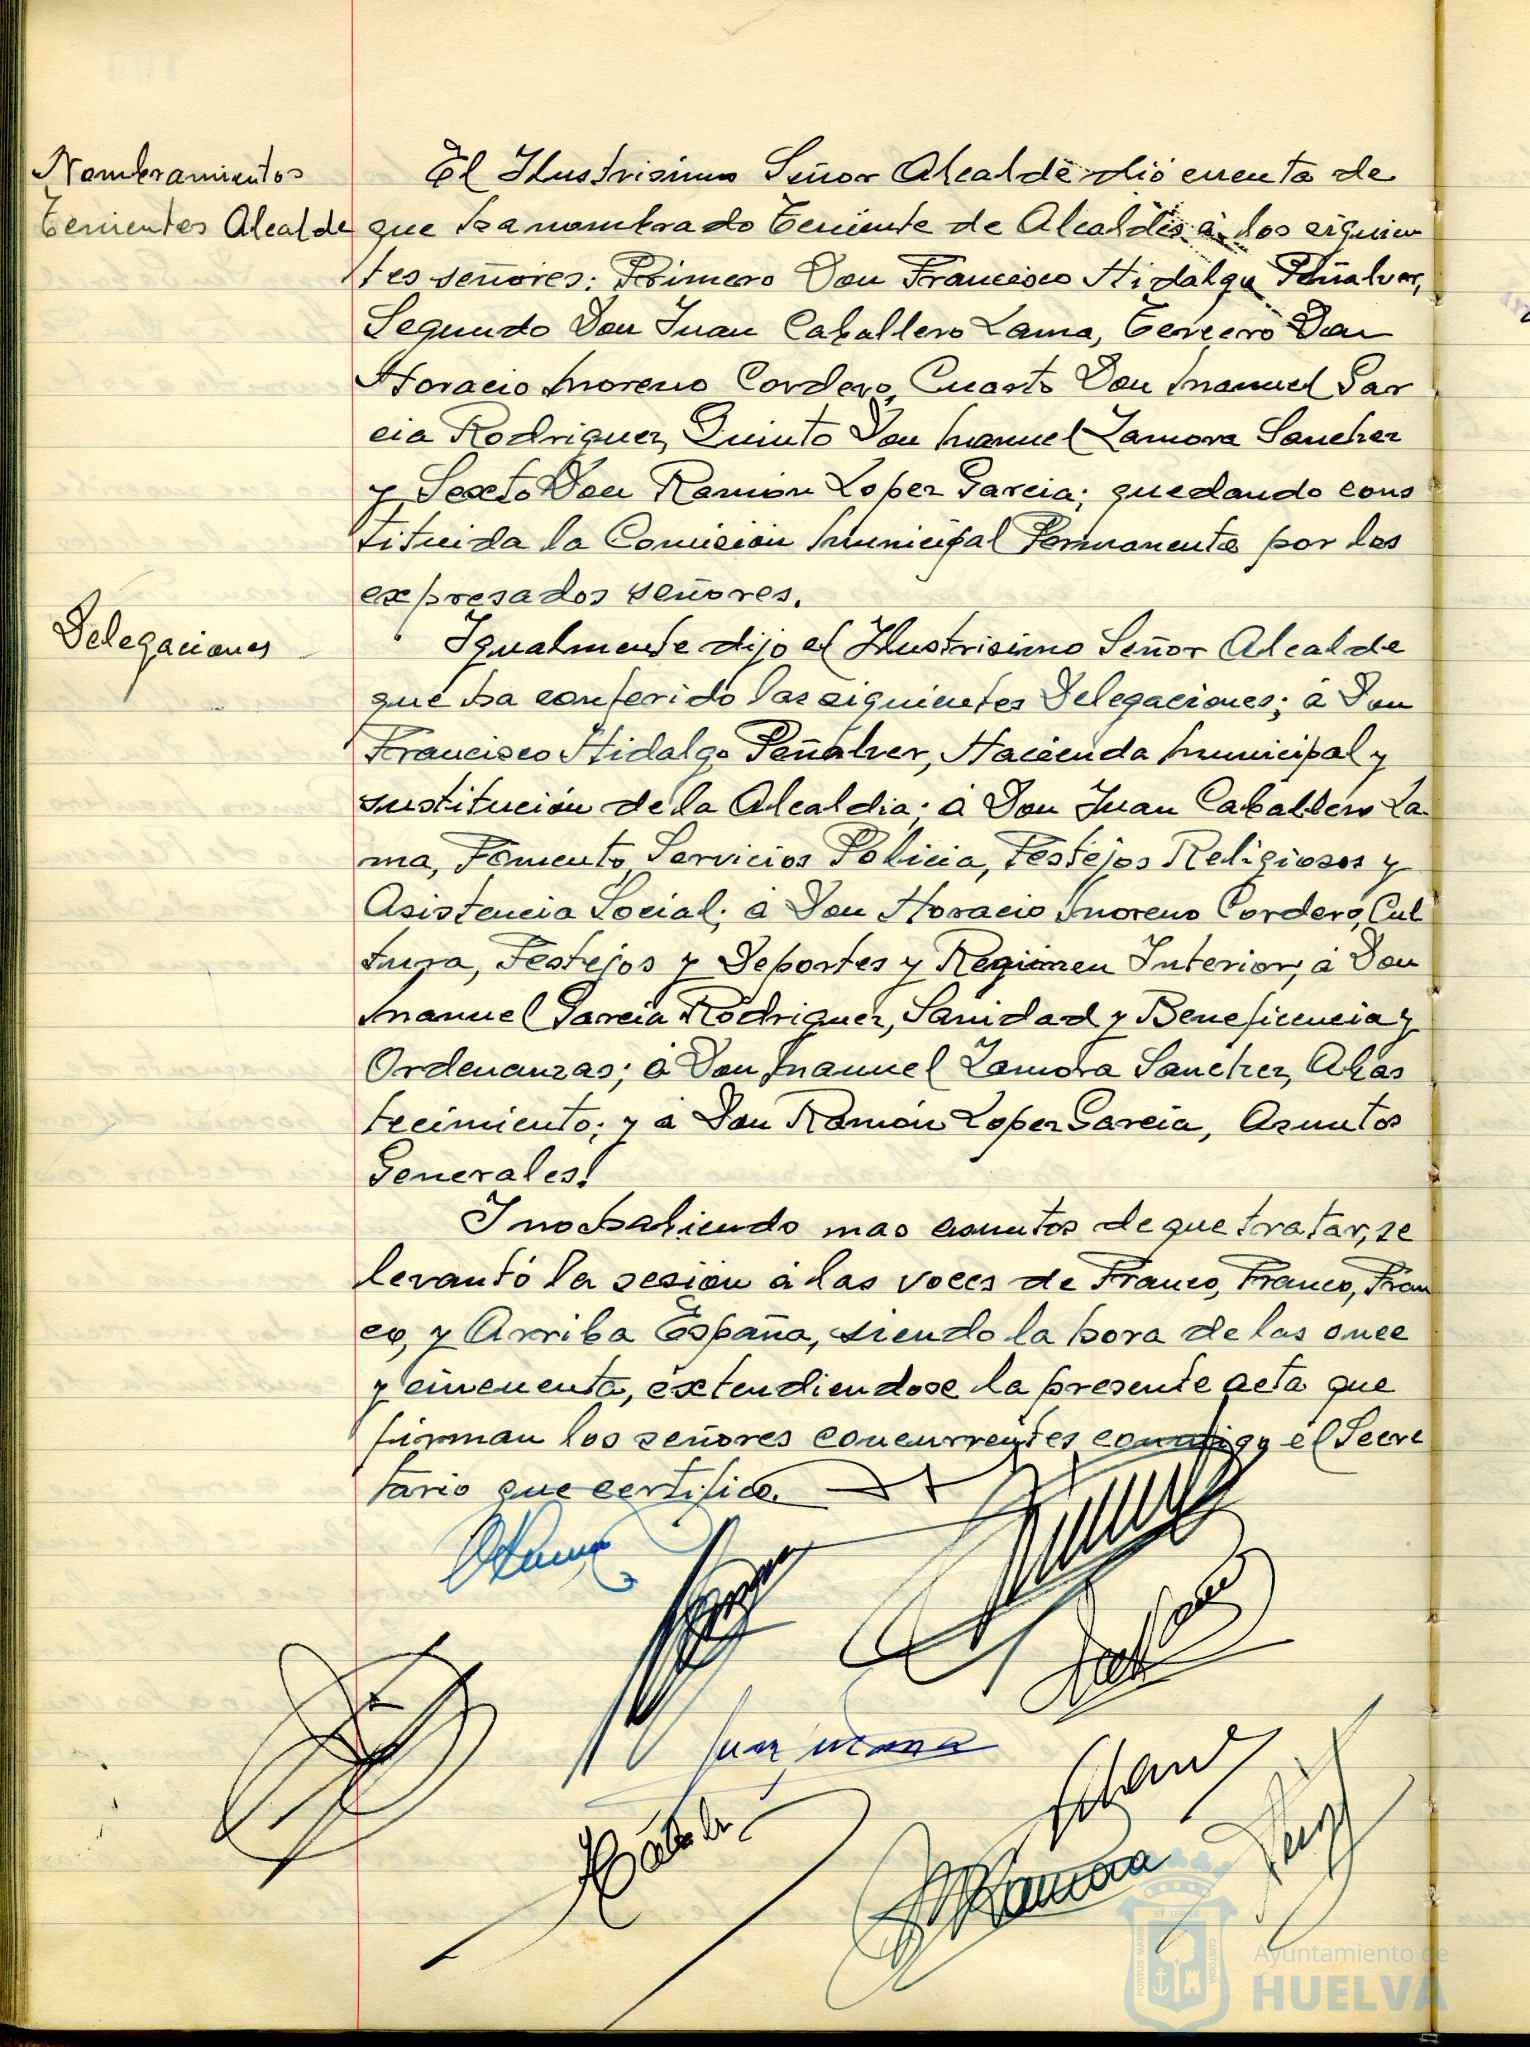 Nombramientos
Tenientes Alcalde
El Ilustrisimo Señor Alcalde dió cuenta de
que ha nombrado Teniente de Alcaldes á los siguien
tes señores: Primero Don Francisco Hidalgo Peñalver,
Segundo Don Juan Caballero Lama, Tercero Don
Horacio Moreno Cordero, Cuarto Don Manuel Gar
cia Rodriguez, Quinto Don Manuel Zamora Sanchez
y Sexto Don Ramón Lopez Garcia; quedando cons
tituida la Comisión Municipal Permanente por los
expresados señores.
Delegaciones
Igualmente dijo el Ilustrisimo Señor Alcalde
que ha conferido las siguientes Delegaciones; á Don
Francisco Hidalgo Peñalver, Hacienda Municipal y
sustitución de la Alcaldia; á Don Juan Caballero La
ma, Fomento, Servicios Policia, Festejos Religiosos y
Asistencia Social; á Don Horacio Moreno Cordero, Cul
tura, Festejos y Deportes y Regimen Interior; á Don
Manuel Garcia Rodriguez, Sanidad y Beneficencia y
Ordenanzas; á Don Manuel Zamora Sanchez, Abas
tecimiento; y á Don Ramón Lopez Garcia, Asuntos
Generales.
Y no habiendo mas asuntos de que tratar, se
levantó la sesión á las voces de Franco, Franco, Fran
co, y Arriba España, siendo la hora de las once
y cincuenta, extendiendose la presente acta que
firman los señores concurrentes conmigo el Secre
tario que certifico.
Zamora
Ayuntamiento de
HUELVA